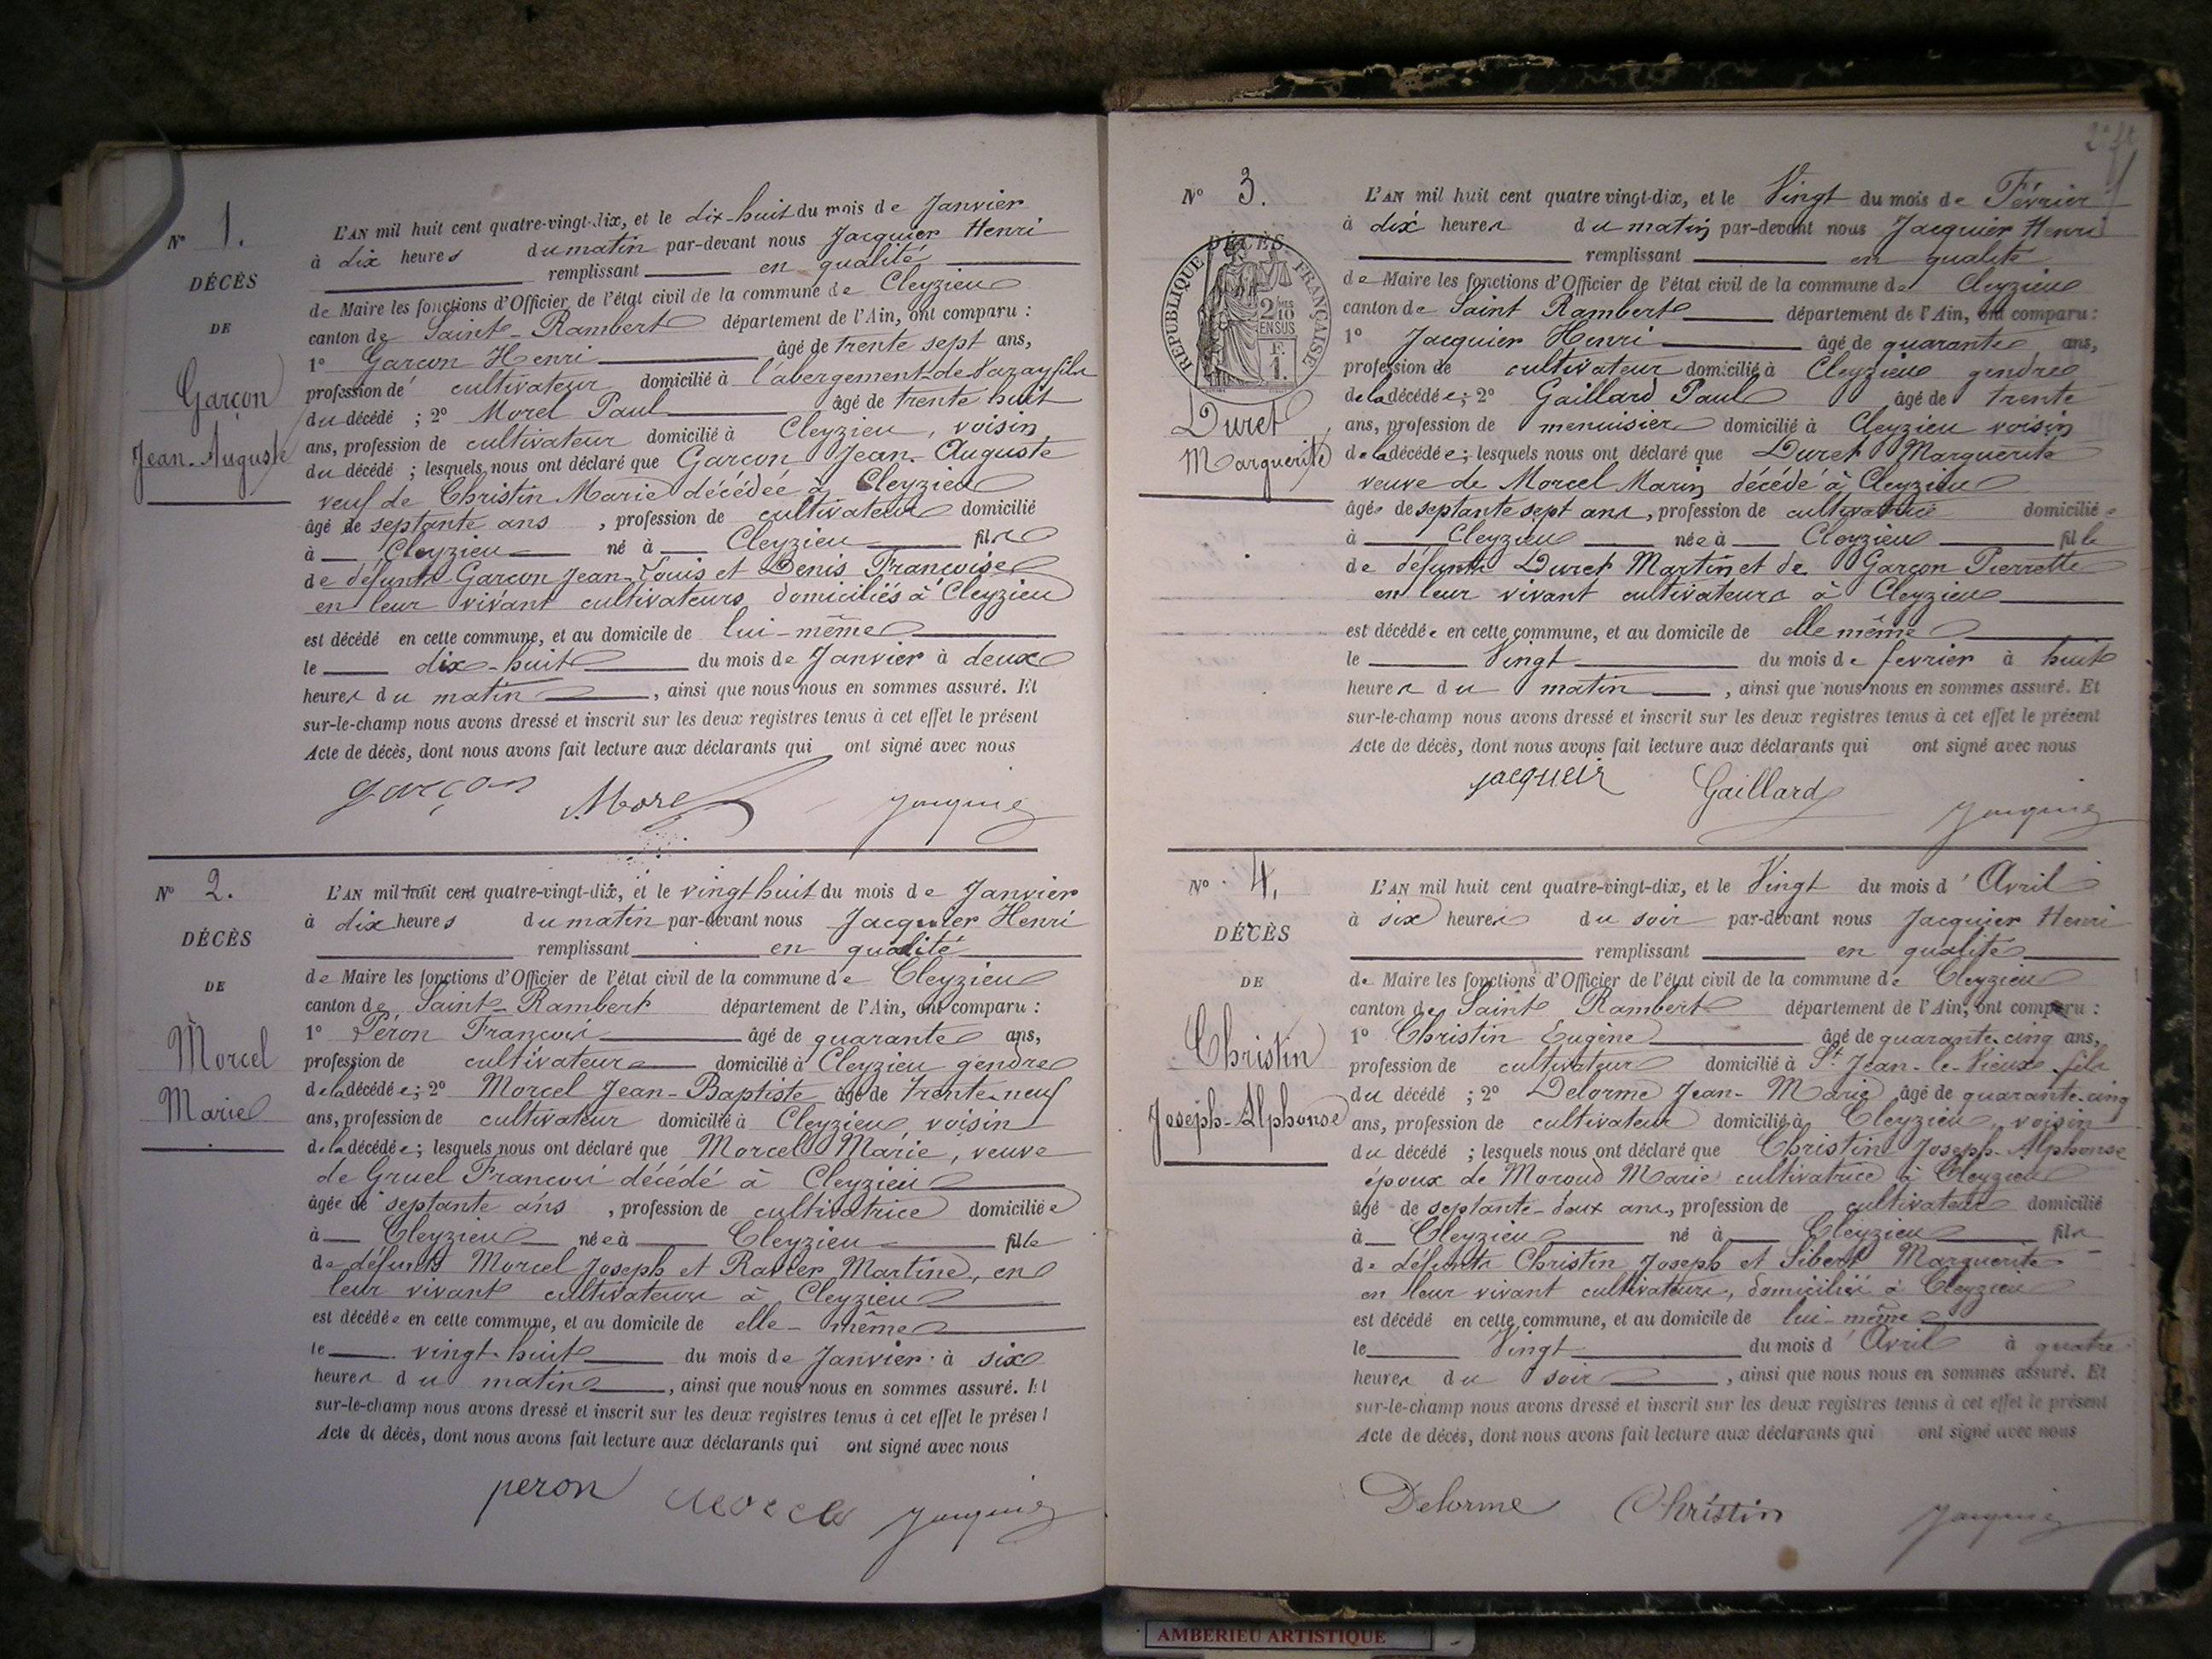 No 1.
DÉCÈS
DE
Garçon
Jean-Auguste
L'AN mil huit cent quatre-vingt-dix, et le dix-huit du mois de Janvier
à dix heures du matin par-devant nous Jacquier Henri
remplissant en qualité
de Maire les fonctions d'Officier de l'état civil de la commune de Cleyzieu
canton de Saint-Rambert département de l'Ain, ont comparu :
1o Garçon Henri âgé de trente sept ans,
profession de cultivateur domicilié à l'abergement-de-Vazay fils
du décédé ; 2o Morel Paul âgé de trente huit
ans, profession de cultivateur domicilié à Cleyzieu, voisin
du décédé ; lesquels nous ont déclaré que Garçon Jean-Auguste
veuf de Christin Marie décédée à Cleyzieu
âgé de septante ans, profession de cultivateur domicilié
à Cleyzieu né à Cleyzieu fils
de défunts Garçon Jean-Louis et Denis Françoise
en leur vivant cultivateurs domiciliés à Cleyzieu
est décédé en cette commune, et au domicile de lui-même
le dix-huit du mois de Janvier à deux
heures du matin, ainsi que nous nous en sommes assuré. Et
sur-le-champ nous avons dressé et inscrit sur les deux registres tenus à cet effet le présent
Acte de décès, dont nous avons fait lecture aux déclarants qui ont signé avec nous
garçon Morel Jacquier
No 2.
DÉCÈS
DE
Morcel
Marie
L'AN mil huit cent quatre-vingt-dix, et le vingt huit du mois de Janvier
à dix heures du matin par-devant nous Jacquier Henri
remplissant en qualité
de Maire les fonctions d'Officier de l'état civil de la commune de Cleyzieu
canton de Saint-Rambert département de l'Ain, ont comparu :
1o Péron François âgé de quarante ans,
profession de cultivateur domicilié à Cleyzieu gendre
de la décédée ; 2o Morcel Jean-Baptiste âgé de trente-neuf
ans, profession de cultivateur domicilié à Cleyzieu, voisin
de la décédée ; lesquels nous ont déclaré que Morcel Marie, veuve
de Gruel François décédé à Cleyzieu
âgée de septante ans, profession de cultivatrice domiciliée
à Cleyzieu née à Cleyzieu fille
de défunts Morcel Joseph et Ravier Martine, en
leur vivant cultivateurs à Cleyzieu
est décédée en cette commune, et au domicile de elle-même
le vingt-huit du mois de Janvier à six
heures du matin, ainsi que nous nous en sommes assuré. Et
sur-le-champ nous avons dressé et inscrit sur les deux registres tenus à cet effet le présent
Acte de décès, dont nous avons fait lecture aux déclarants qui ont signé avec nous
peron Morcel Jacquier
No 3.
DÉCÈS
RÉPUBLIQUE FRANÇAISE
2/10 EN SUS
F. 1.
Duret
Marguerite
L'AN mil huit cent quatre vingt-dix, et le Vingt du mois de Février
à dix heures du matin par-devant nous Jacquier Henri
remplissant en qualité
de Maire les fonctions d'Officier de l'état civil de la commune de Cleyzieu
canton de Saint Rambert département de l'Ain, ont comparu :
1o Jacquier Henri âgé de quarante ans,
profession de cultivateur domicilié à Cleyzieu gendre
de la décédée ; 2o Gaillard Paul âgé de trente
ans, profession de menuisier domicilié à Cleyzieu voisin
de la décédée ; lesquels nous ont déclaré que Duret Marguerite
veuve de Morcel Marin décédé à Cleyzieu
âgée de septante sept ans, profession de cultivatrice domiciliée
à Cleyzieu née à Cleyzieu fille
de défunts Duret Martin et de Garçon Pierrette
en leur vivant cultivateurs à Cleyzieu
est décédée en cette commune, et au domicile de elle même
le Vingt du mois de fevrier à huit
heures du matin, ainsi que nous nous en sommes assuré. Et
sur-le-champ nous avons dressé et inscrit sur les deux registres tenus à cet effet le présent
Acte de décès, dont nous avons fait lecture aux déclarants qui ont signé avec nous
jacqueir Gaillard Jacquier
No 4.
DÉCÈS
DE
Christin
Joseph-Alphonse
L'AN mil huit cent quatre-vingt-dix, et le Vingt du mois d'Avril
à six heures du soir par-devant nous Jacquier Henri
remplissant en qualité
de Maire les fonctions d'Officier de l'état civil de la commune de Cleyzieu
canton de Saint Rambert département de l'Ain, ont comparu :
1o Christin Eugène âgé de quarante-cinq ans,
profession de cultivateur domicilié à St Jean-le-Vieux fils
du décédé ; 2o Delorme Jean-Marie âgé de quarante-cinq
ans, profession de cultivateur domicilié à Cleyzieu, voisin
du décédé ; lesquels nous ont déclaré que Christin Joseph-Alphonse
époux de Moroud Marie cultivatrice à Cleyzieu
âgé de septante-deux ans, profession de cultivateur domicilié
à Cleyzieu né à Cleyzieu fils
de défunts Christin Joseph et Sibert Marguerite
en leur vivant cultivateurs, domiciliés à Cleyzieu
est décédé en cette commune, et au domicile de lui-même
le Vingt du mois d'Avril à quatre
heures du soir, ainsi que nous nous en sommes assuré. Et
sur-le-champ nous avons dressé et inscrit sur les deux registres tenus à cet effet le présent
Acte de décès, dont nous avons fait lecture aux déclarants qui ont signé avec nous
Delorme Christin Jacquier
AMBERIEU ARTISTIQUE